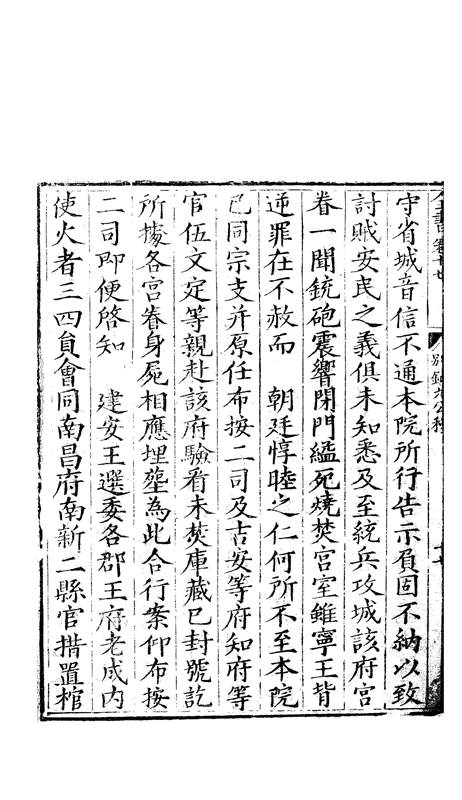 全書卷十七
別錄九公移
十七
守省城音信不通本院所行告示負固不納以致
討賊安民之義俱未知悉及至統兵攻城該府宮
眷一聞銃砲震響閉門縊死燒焚宮室雖寧王背
逆罪在不赦而 朝廷惇睦之仁何所不至本院
已同宗支并原任布按二司及吉安等府知府等
官伍文定等親赴該府驗看未焚庫藏已封號訖
所據各宮眷身屍相應埋塟為此合行案仰布按
二司即便啓知 建安王選委各郡王府老成内
使火者三四負會同南昌府南新二縣官措置棺